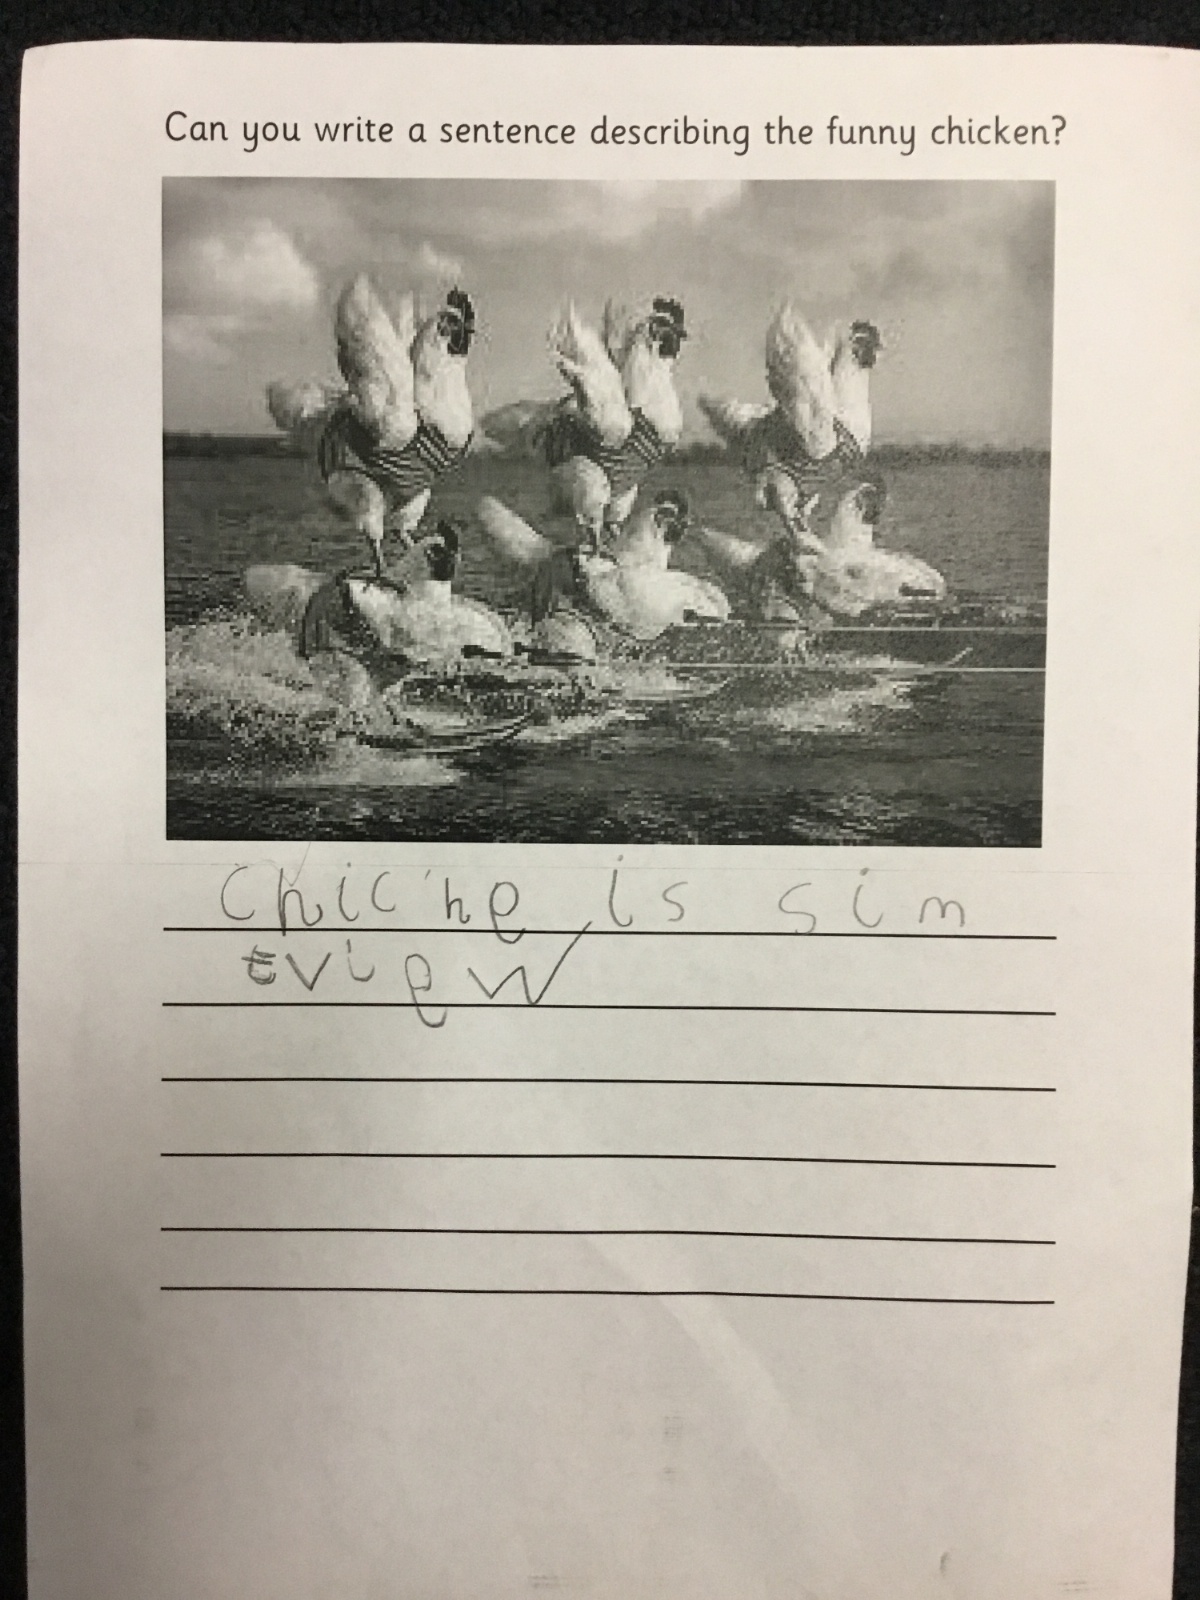 Can you write a sentence describing the funny chicken?
Chic he is sim
tview